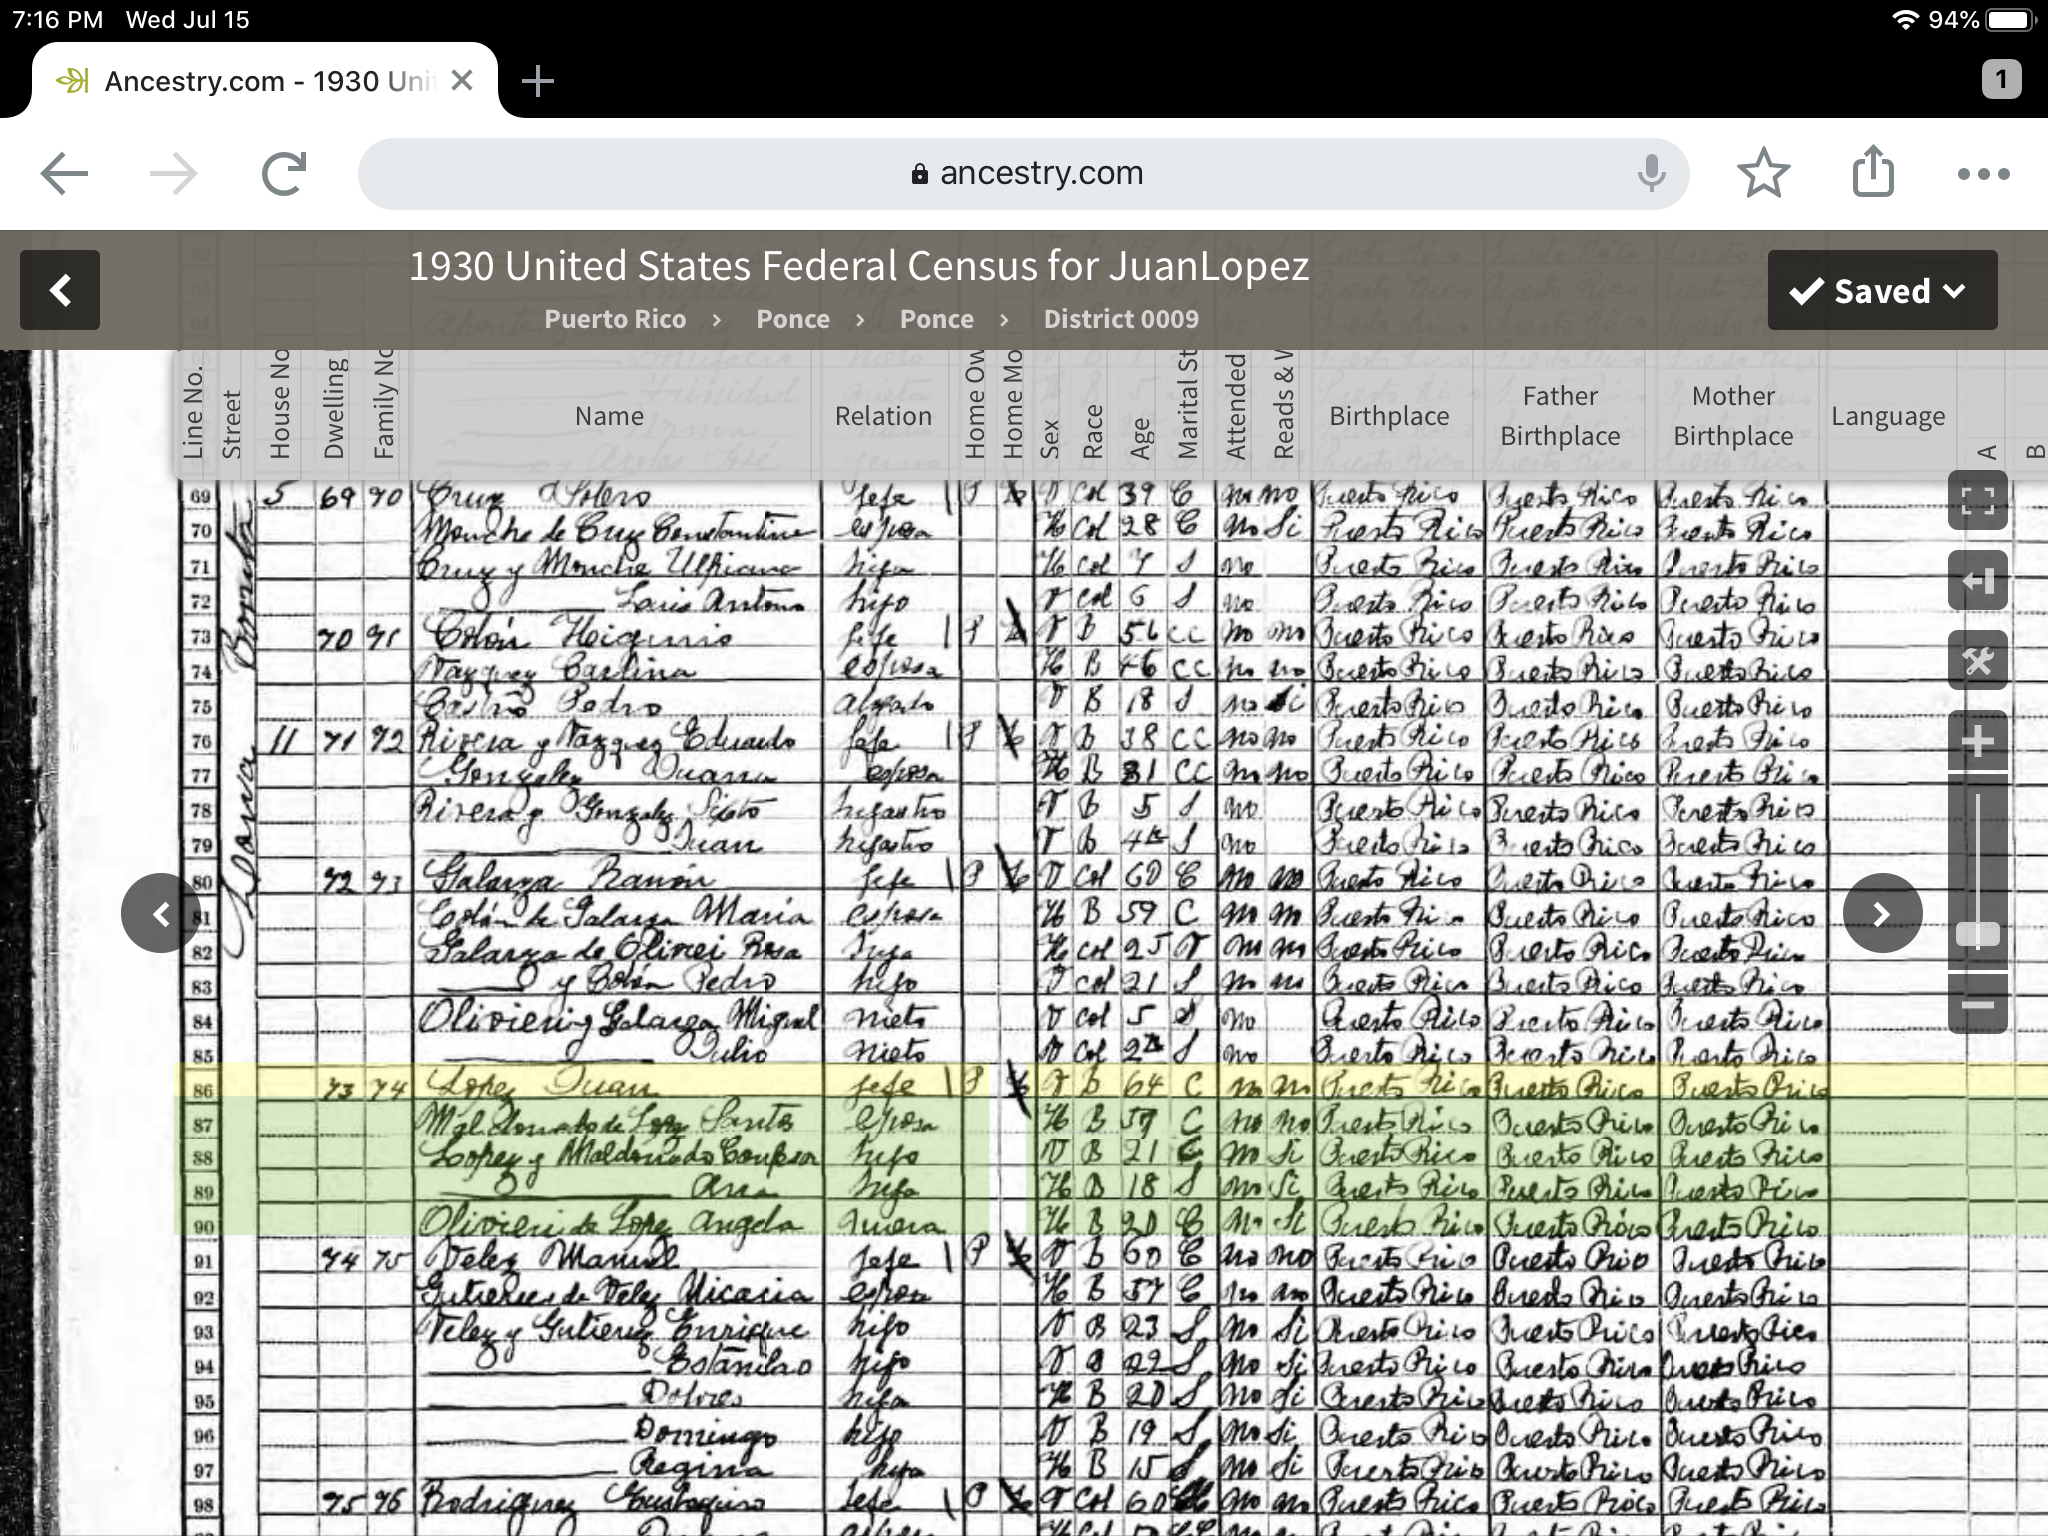 7:16 PM Wed Jul 15 94%
Ancestry.com - 1930 Uni 1
ancestry.com
1930 United States Federal Census for JuanLopez
Saved
Puerto Rico > Ponce > Ponce > District 0009
Line No. Street House No Dwelling Family No Name Relation Home Ow Home Mo Sex Race Age Marital St Attended Reads & Birthplace Father Birthplace Mother Birthplace Language A B
69 5 69 70 Cruz jefe P V Col 39 C no no Puerto Rico Puerto Rico Puerto Rico
70 de Cruz esposa H Col 28 C no Si Puerto Rico Puerto Rico Puerto Rico
71 Cruz y hija H Col 7 S no Puerto Rico Puerto Rico Puerto Rico
72 Luis Antonio hijo V Col 6 S no Puerto Rico Puerto Rico Puerto Rico
73 70 71 Colón Higinio jefe P V B 56 CC no no Puerto Rico Puerto Rico Puerto Rico
74 Vazquez Carlina esposa H B 46 CC no no Puerto Rico Puerto Rico Puerto Rico
75 Pedro V B 18 S no Si Puerto Rico Puerto Rico Puerto Rico
76 11 71 72 Rivera y Vazquez Eduardo jefe P V B 38 CC no no Puerto Rico Puerto Rico Puerto Rico
77 Gonzalez Juana esposa H B 31 CC no no Puerto Rico Puerto Rico Puerto Rico
78 Rivera y Gonzalez Sixto hijastro V B 5 S no Puerto Rico Puerto Rico Puerto Rico
79 Juan hijastro V B S no Puerto Rico Puerto Rico Puerto Rico
80 72 73 Galarza Ramón jefe P V Col 60 C no no Puerto Rico Puerto Rico Puerto Rico
81 Colón de Galarza María esposa H B 59 C no no Puerto Rico Puerto Rico Puerto Rico
82 Galarza de Rosa hija H Col 25 V no no Puerto Rico Puerto Rico Puerto Rico
83 y Colón Pedro hijo V Col 21 S no no Puerto Rico Puerto Rico Puerto Rico
84 Olivieri y Galarza Miguel nieto V Col 5 S no Puerto Rico Puerto Rico Puerto Rico
85 Julio nieto V Col S no Puerto Rico Puerto Rico Puerto Rico
86 73 74 Lopez Juan jefe P V B 64 C no no Puerto Rico Puerto Rico Puerto Rico
87 Maldonado de Lopez Santos esposa H B C no no Puerto Rico Puerto Rico Puerto Rico
88 Lopez y Maldonado hijo V B 21 C no Si Puerto Rico Puerto Rico Puerto Rico
89 Ana hija H B 18 S no Si Puerto Rico Puerto Rico Puerto Rico
90 Olivieri de Lopez Angela nuera H B 20 C no Si Puerto Rico Puerto Rico Puerto Rico
91 74 75 Velez Manuel jefe P V B 60 C no no Puerto Rico Puerto Rico Puerto Rico
92 Gutierrez de Velez Nicacia esposa H B 57 C no no Puerto Rico Puerto Rico Puerto Rico
93 Velez y Gutierrez Enrique hijo V B 23 S no Si Puerto Rico Puerto Rico Puerto Rico
94 Estanilao hijo V B 22 S no Si Puerto Rico Puerto Rico Puerto Rico
95 Dolores hija H B 20 S no Si Puerto Rico Puerto Rico Puerto Rico
96 Domingo hijo V B 19 S no Si Puerto Rico Puerto Rico Puerto Rico
97 Regina hija H B 15 S no Si Puerto Rico Puerto Rico Puerto Rico
98 75 76 Rodriguez jefe P V Col 60 no no Puerto Rico Puerto Rico Puerto Rico